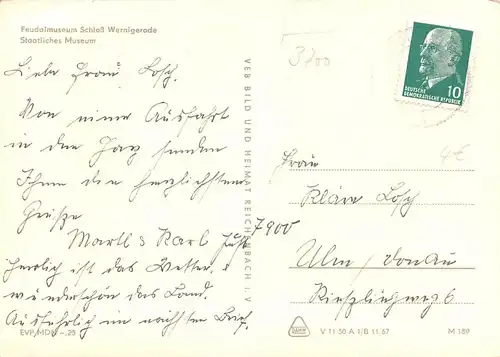 Feudalmuseum Schloß Wernigerode
Staatliches Museum
Liebe Frau Losch.
Von einer Ausfahrt
in den Harz senden
Ihnen die herzlichsten
Grüße
Martl & Karl
herrlich ist das Wetter,
wunderschön das Land.
Ausführlich im nächsten Brief.
EVP MDN -.25
VEB BILD UND HEIMAT REICHENBACH I. V.
3700
DEUTSCHE
DEMOKRATISCHE REPUBLIK
10
4€
Frau
Klara Losch
7900
Ulm/Donau
V 11 50 A 1/B 11/67
M 189